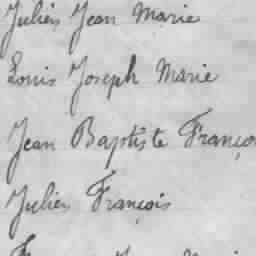 Julien Jean Marie
Louis Joseph Marie
Jean Baptiste Franço
Julien François